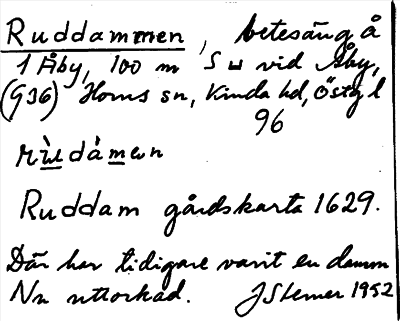 Ruddammen, betesäng å
1 Åby, 100 m SW vid Åby,
(G36) Horns sn, Kinda hd, Östgl
96
rùddámen
Ruddam gårdskarta 1629.
Där har tidigare varit en damm
Nu uttorkad. JSterner 1952